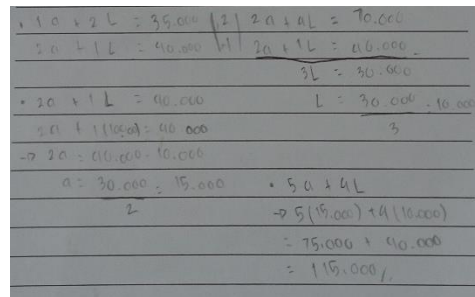 • 1a + 2L = 35.000 |2| 2a + 4L = 70.000
2a + 1L = 40.000 |1| 2a + 1L = 40.000 -
3L = 30.000
• 2a + 1L = 40.000
L = 30.000 = 10.000
3
2a + 1(10.000) = 40.000
→ 2a = 40.000 - 10.000
a = 30.000 = 15.000
2
• 5a + 4L
→ 5(15.000) + 4(10.000)
= 75.000 + 40.000
= 115.000/.